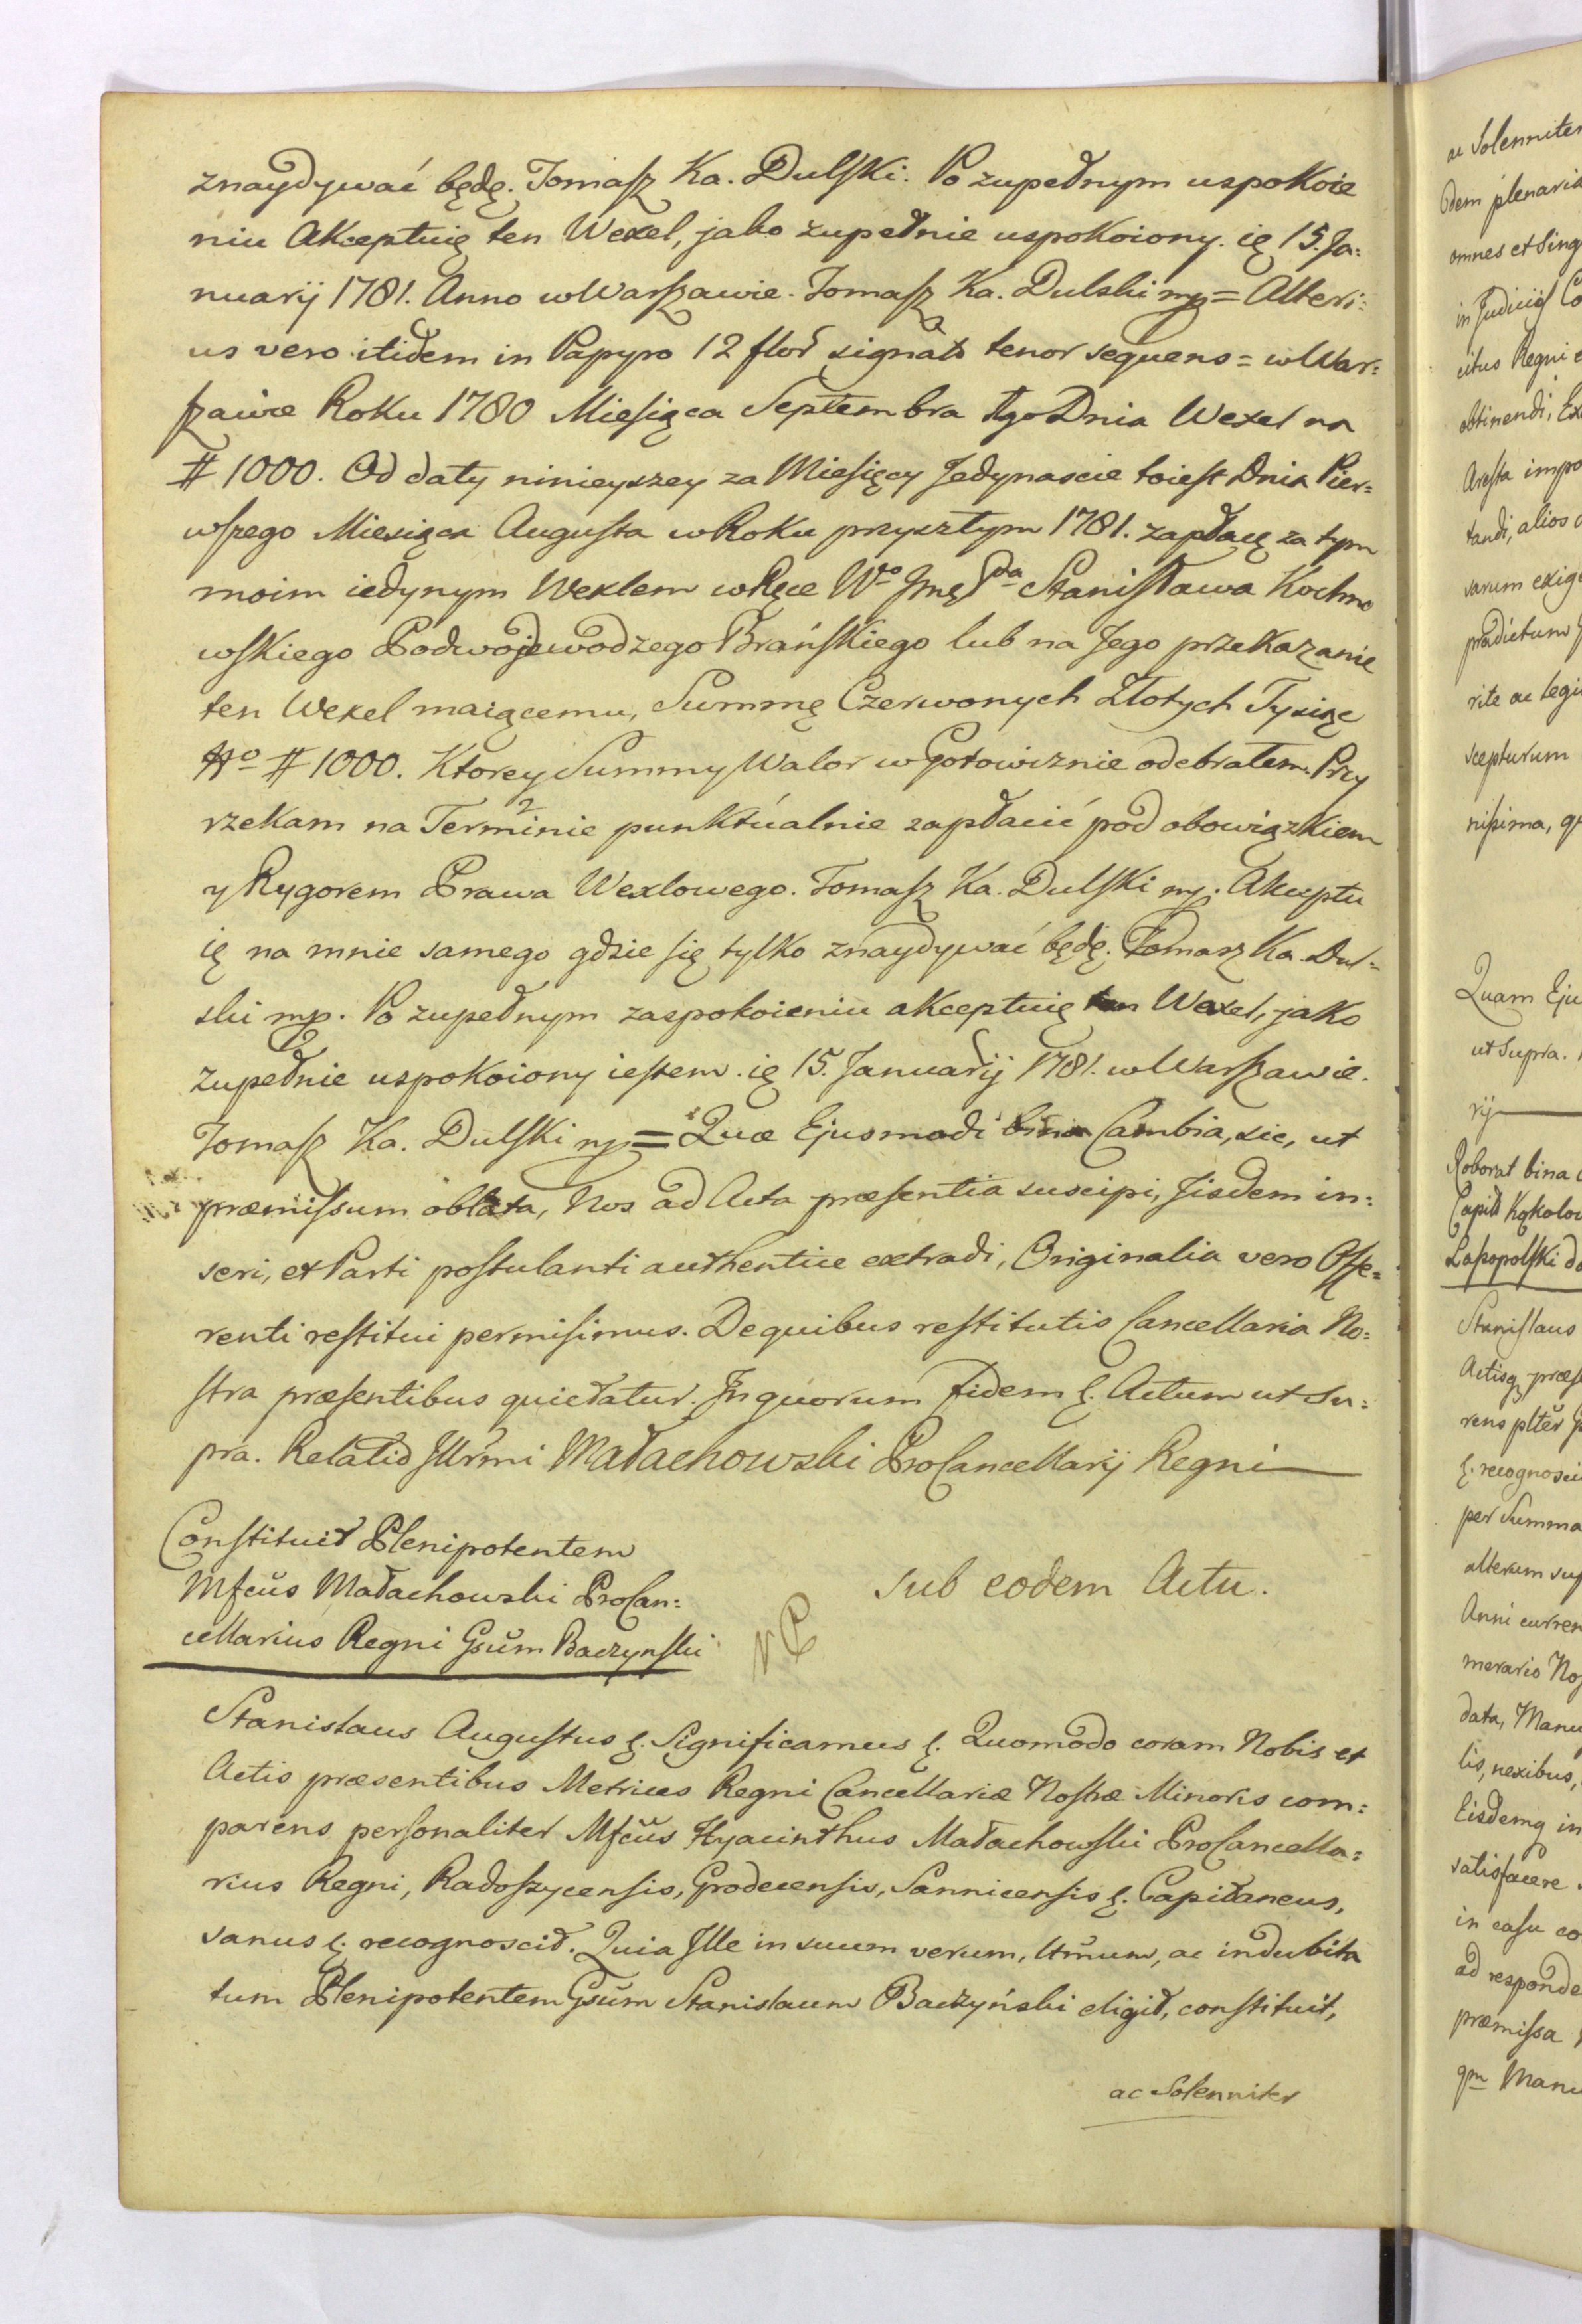 znaydywać będę. Tomasz Ka. Dulski. Po zupełnym uspokoie
niu Akceptuię ten Wexel, jako zupełnie uspokoiony. ię 15. Ja:
nuarij 1781. Anno w Warszawie. Tomasz Ka. Dulski mp = Alteri:
us vero itidem in Papyro 12 flor signato tenor sequens = w War:
szawie Roku 1780 Miesiąca Septembra 1go Dnia Wexel na
# 1000. Od daty ninieyszey za Miesięcy Jedynascie toiest Dnia Pier=
wszego Miesiąca Augusta w Roku przyszłym 1781. zapłacę za tym
moim iedynym Wexlem w Ręce Wo Jmę Pda Stanisława Kochno
wskiego Podwojewodzego Brańskiego lub na Jego przekazanie
ten Wexel maiącemu, Summę Czerwonych Złotych Tysiąc
No # 1000. Ktorey Summy Walor w Gotowiznie odebrałem. Przy
rzekam na Terminie punktualnie zapłacić pod obowiązkiem
y Rygorem Prawa Wexlowego. Tomasz Ka. Dulski mp. Akceptu
ię na mnie samego gdzie się tylko znaydywać będę. Tomasz Ka. Dul=
ski mp. Po zupełnym zaspokoieniu akceptuię ten Wexel, jako
zupełnie uspokoiony iestem. ię 15. Januarij 1781. w Warszawie.
Tomasz Ka. Dulski mp = Quæ Ejusmodi bina Cambia, sic, ut
præmissum oblata, Nos ad Acta præsentia suscipi, Jisdem in:
seri, et Parti postulanti authentice extradi, Originalia vero Offe=
renti restitui permisimus. De quibus restitutis Cancellaria No:
stra præsentibus quietatur. In quorum fidem &. Actum ut Su:
pra. Relatio Illrmi Małachowski ProCancellarij Regni
Constituit Plenipotentem
Mfcus Małachowski ProCan:
cellarius Regni Gsum Baczynski
Sub eodem Actu.
Stanislaus Augustus &. Significamus &. Quomodo coram Nobis et
Actis præsentibus Metrices Regni Cancellariæ Nostræ Minoris com:
parens personaliter Mfcus Hyacinthus Małachowski ProCancella:
rius Regni, Radoszycensis, Grodecensis, Sannicensis &. Capitaneus,
sanus &. recognoscit. Quia Ille in suum verum, ltmum, ac indubita
tum Plenipotentem Gsum Stanislaum Baczyński eligit, constituit,
ac Solenniter
ac Solenniter
omnes et Sing
obtinendi, Ex
tandi, alios
rite ac legi
Quam Eju
ut Supra.
rij
Roborat bina
Stanislaus
per Summa
alterum sup
Anni curren
data, Manu
satisfacere
in casu co
ad responde
præmissa